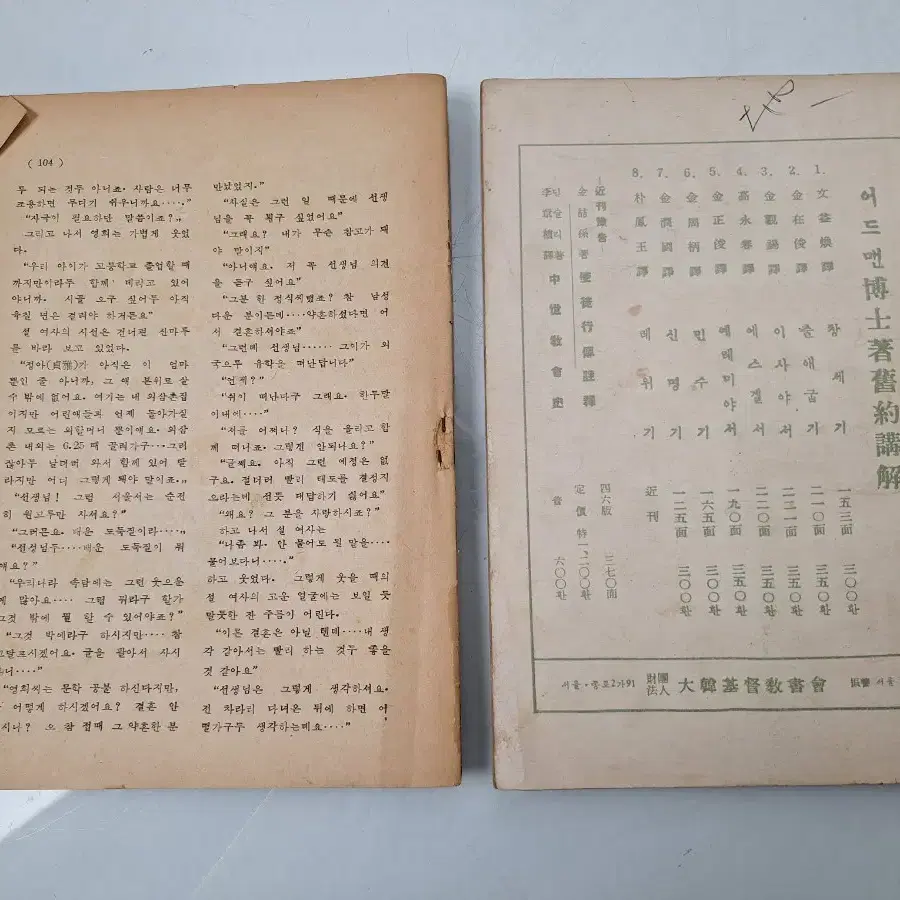 ( 104 )
두 되는 것두 아니죠. 사람은 너무
조용하면 무디기 쉬우니까요‥‥."
"자극이 필요하단 말씀이죠?„
그리고 나서 영희는 가볍게 웃었
다.
"우리 아이가 고등학교 졸업할 때
까지만이라두 함께 데리고 있어
야니까. 시골 오구 싶어두 아직
육칠 년은 걸려야 하거든요"
설 여사의 시선은 건너편 산마루
를 바라 보고 있었다.
"정아(貞雅)가 아직은 이 엄마
뿐인 줄 아니까, 그 애 본위로 살
수 밖에 없어요. 여기는 내 외삼촌집
이지만 어린애들과 언제 돌아가실
지 모르는 외할머니 뿐이얘요. 외삼
촌 내외는 6.25 때 끌려가구‥‥그리
잖아두 날더러 와서 함께 있어 달
라지만 어디 그렇게 돼야 말이죠.„
"선생님! 그럼 서울서는 순전
히 원고루만 자셔요?"
"그러믄요. 배운 도둑질이라‥‥„
"선생님두‥‥배운 도둑질이 뭐
얘요?"
"우리나라 속담에는 그런 웃으운
게 많아요‥‥ 그럼 뭐라구 할가
그것 밖에 뭘 할 수 있어야죠?"
"그것 밖에라구 하시지만‥‥ 참
고달프시겠어요. 글을 팔아서 사시
"영희씨는 문학 공불 하신다지만,
어떻게 하시겠어요? 결혼 안
시나? 으 참 접때 그 약혼한 분
만났었지."
"사실은 그런 일 때문에 선생
님을 꼭 뵙구 싶었어요"
"그래요? 내가 무슨 참고가 돼
야 말이지"
"아니얘요. 저 꼭 선생님 의견
을 듣구 싶어요"
"그분 한 정식씨랬죠? 참 남성
다운 분이든데‥‥약혼하셨다면 어
서 결혼하셔야죠"
"그런데 선생님‥‥ 그이가 외
국으루 유학을 떠난답니다"
"언제?"
"쉬이 떠난다구 그래요. 한두달
이내에‥‥"
"저를 어쩌나? 식을 올리고 함
께 떠나죠. 그렇겐 안되나요?"
"글쎄요. 아직 그런 예정은 없
구요. 절더러 빨리 태도를 결정지
으라는데 선뜻 대답하기 싫어요"
"왜요? 그 분을 사랑하시죠?"
하고 나서 설 여사는
"나좀 봐. 안 물어도 될 말을‥‥
물어보다니‥‥."
하고 웃었다. 그렇게 웃을 때의
설 여사의 고운 얼굴에는 보일 듯
말듯한 잔 주름이 어린다.
"이른 결혼은 아닐 텐데‥‥내 생
각 같아서는 빨리 하는 것두 좋을
것 같아요"
"선생님은 그렇게 생각하셔요.
건 차라리 다녀온 뒤에 하면 어
떨가구두 생각하는데요‥‥"
어드맨博士著舊約講解
1. 文益煥 譯 창세기 一五三面 三〇〇환
2. 金在俊 譯 출애굽기 二一〇面 三五〇환
3. 金觀錫 譯 이사야서 二二一面 三五〇환
4. 高永春 譯 에스겔서 二二〇面 三五〇환
5. 金正俊 譯 예레미야서 一九〇面 三五〇환
6. 金周柄 譯 민수기 一六五面 三〇〇환
7. 金漢國 譯 신명기 一二五面 三〇〇환
8. 朴鳳王 譯 레위기 近刊
近刊豫告
金喆孫 著 使徒行傳註釋 四六版 三七〇面
定價 特一、二〇〇환
李章植 譯 中世敎會史 普 六〇〇환
서울・종로2가91 財團法人 大韓基督敎書會 振替 서울